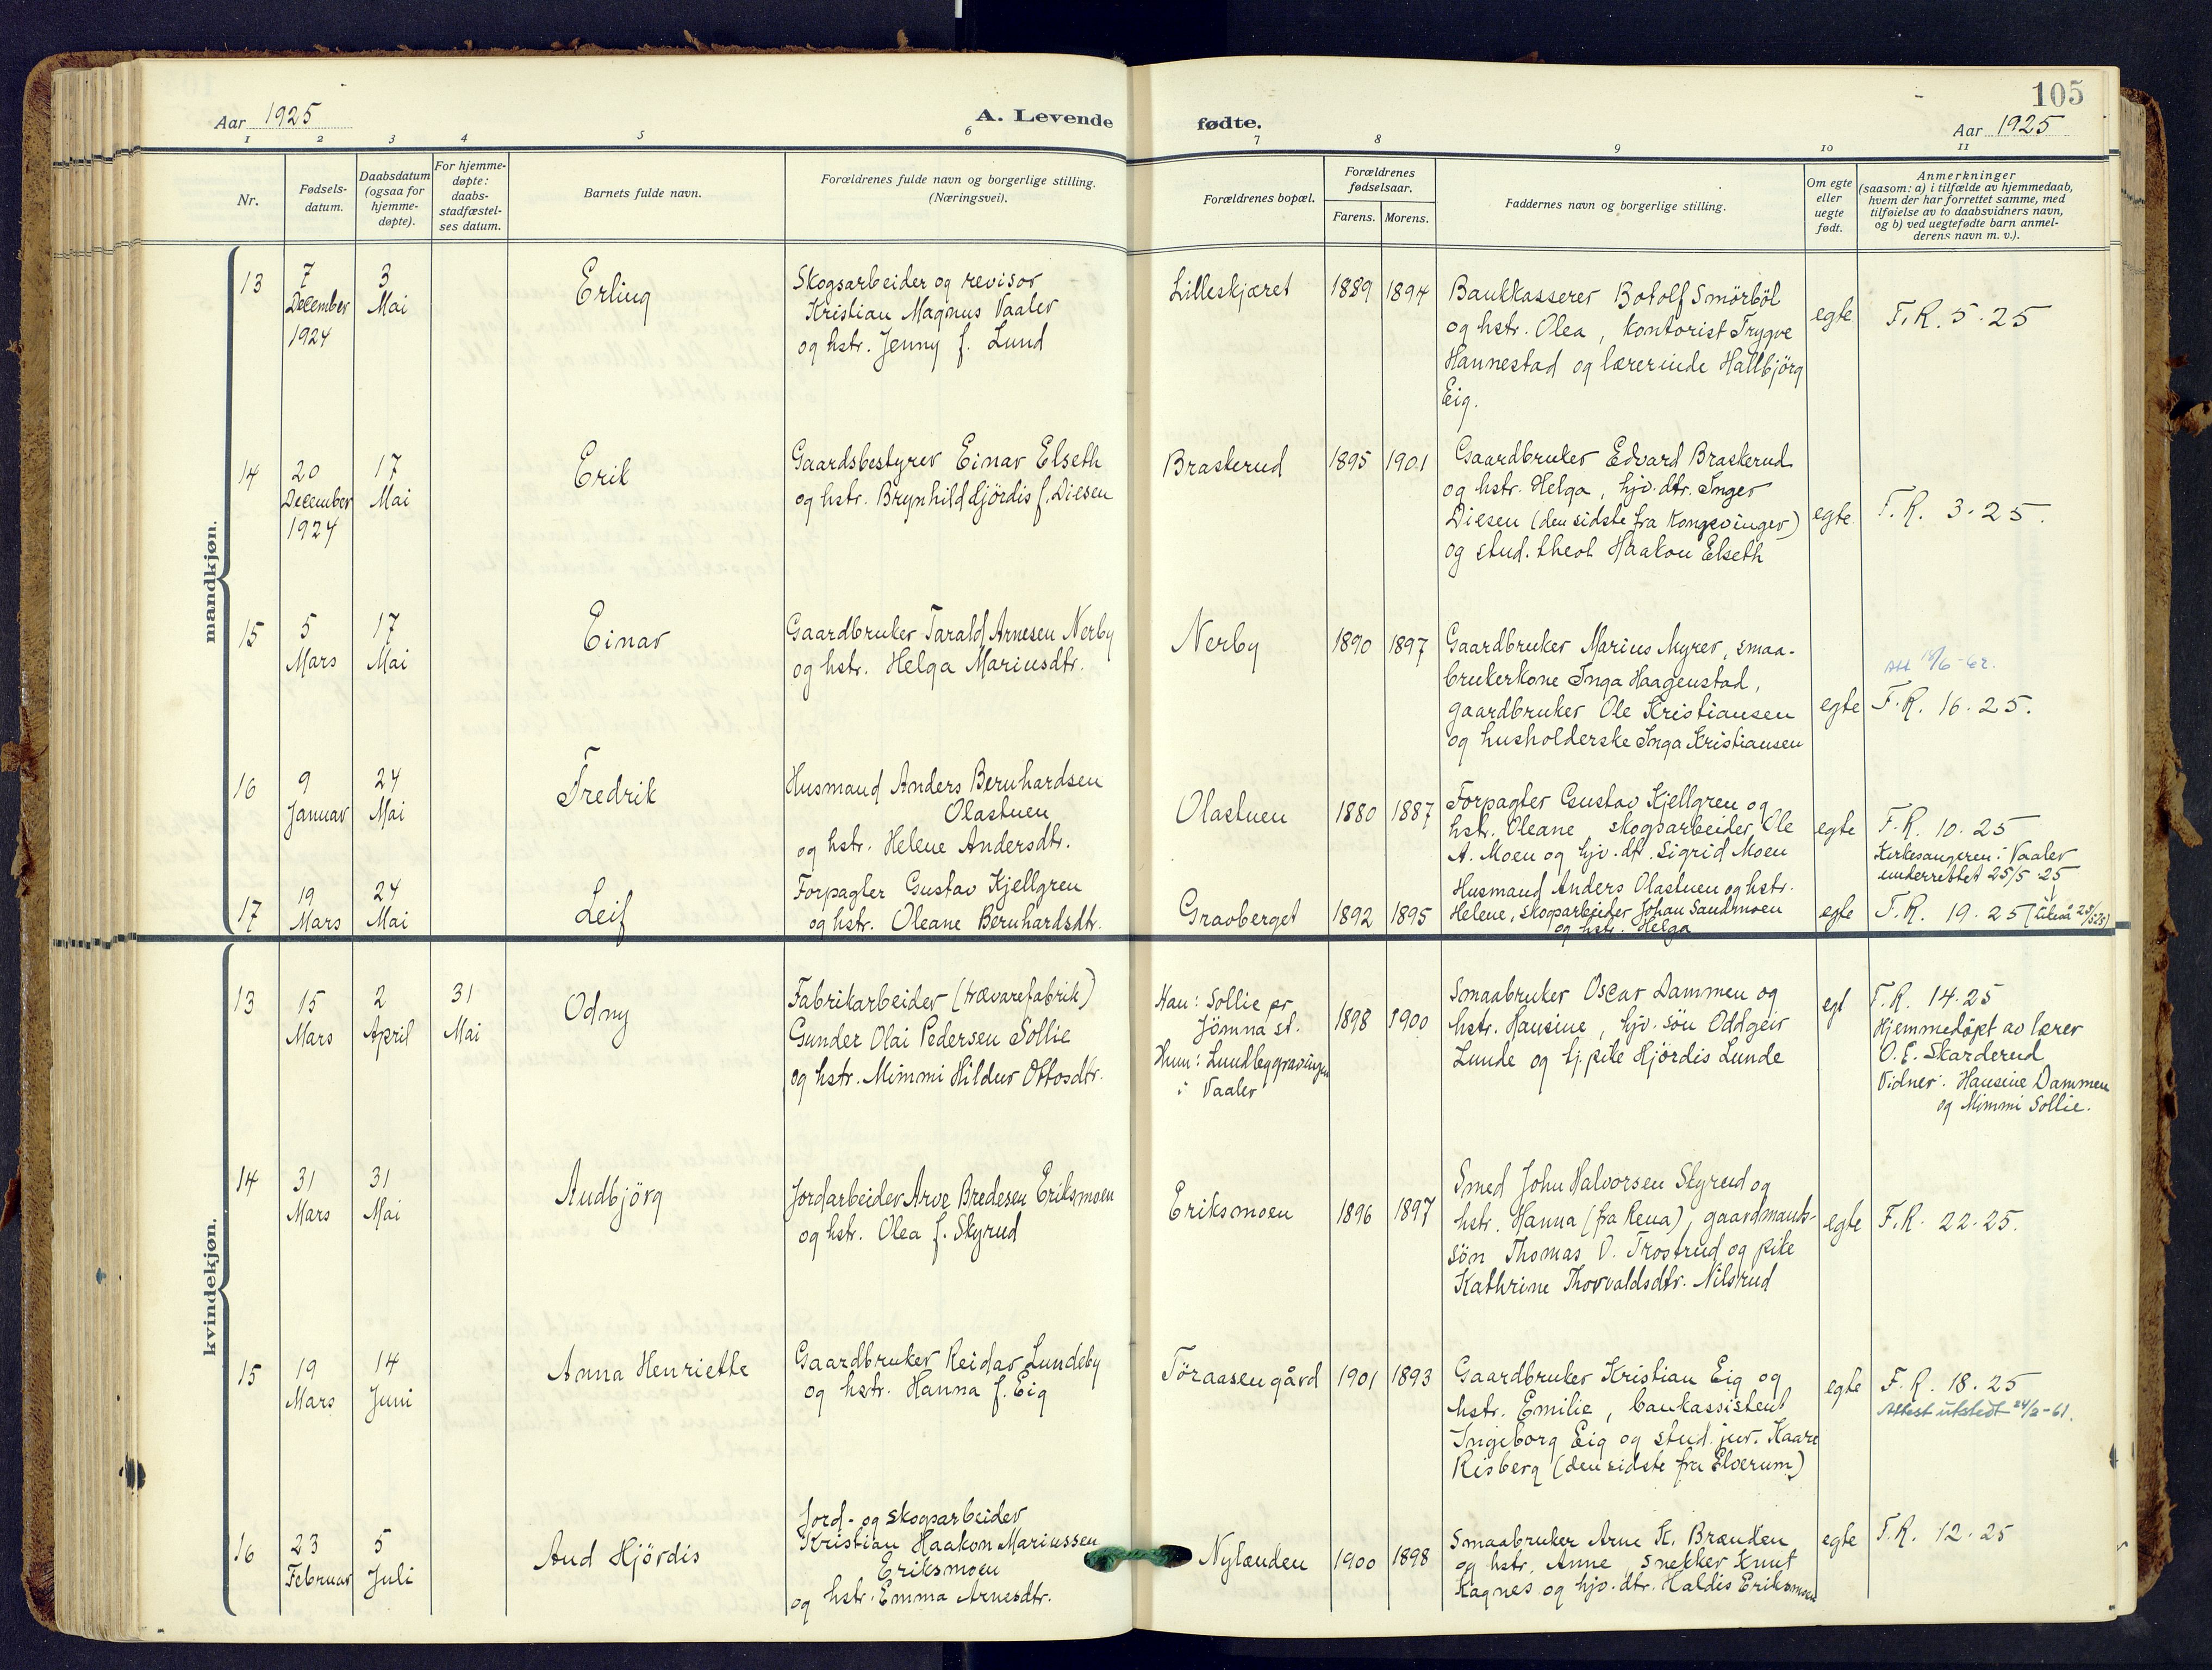 105
Aar 1925
A. Levende
fødte.
Aar 1925
1 2 3 4 5 6 7 8 9 10 11
Nr.
Fødsels-
datum.
Daabsdatum
(ogsaa for
hjemme-
døpte).
For hjemme-
døpte:
daabs-
stadfæstel-
ses datum.
Barnets fulde navn.
Forældrenes fulde navn og borgerlige stilling.
(Næringsvei).
Forældrenes bopæl.
Forældrenes
fødselsaar.
Farens. Morens.
Faddernes navn og borgerlige stilling.
Om egte
eller
uegte
født.
Anmerkninger
(saasom: a) i tilfælde av hjemmedaab,
hvem der har forrettet samme, med
tilføielse av to daabsvidners navn,
og b) ved uegtefødte barn anmel-
derens navn m. v.).
mandkjøn.
13
7
December
1924
3
Mai
Erling
Skogsarbeider og revisor
Kristian Magnus Vaaler
og hstr. Jenny f. Lund
Lilleskjæret
1889
1894
Bankkasserer Botolf Smörböl
og hstr. Olea, kontorist Trygve
Hannestad og lærerinde Hallbjörg
Eig.
egte
F.R. 5.25
14
20
December
1924
17
Mai
Erik
Gaardsbestyrer Einar Elseth
og hstr. Brynhild Hjördis f. Diesen
Braskerud
1895
1901
Gaardbruker Edvard Braskerud
og hstr. Helga, hjv. dtr. Inger
Diesen (den sidste fra Kongsvinger)
og stud. theol. Haakon Elseth
egte
F.R. 3.25.
15
5
Mars
17
Mai
Einar
Gaardbruker Tarald Arnesen Nerby
og hstr. Helga Mariusdtr.
Nerby
1890
1897
Gaardbruker Marius Myrer, smaa-
brukerkone Inga Haagenstad,
gaardbruker Ole Kristiansen
og husholderske Inga Kristiansen
egte
F.R. 16.25.
16
9
Januar
24
Mai
Fredrik
Husmand Anders Bernhardsen
Olastuen
og hstr. Helene Andersdtr.
Olastuen
1880
1887
Forpagter Gustav Kjellgren og
hstr. Oleane, skogsarbeider Ole
A. Moen og hjv. dt. Sigrid Moen
egte
F.R. 10.25
Kirkesangeren i Vaaler
underrettet 25/5 25
17
19
Mars
24
Mai
Leif
Forpagter Gustav Kjellgren
og hstr. Oleane Bernhardsdtr.
Gravberget
1892
1895
Husmand Anders Olastuen og hstr.
Helene, skogsarbeider Johan Sandmoen
og hstr. Helga
egte
F.R. 19.25
kvindekjøn.
13
15
Mars
2
April
31
Mai
Odny
Fabrikarbeider (trævarefabrik)
Gunder Olai Pedersen Sollie
og hstr. Mimmi Hildur Ottosdtr.
Han: Sollie pr
Jömna st.
Hun: Lundbeggravingen
i Vaaler
1898
1900
Smaabruker Oscar Dammen og
hstr. Hansine, hjv. sön Oddgeir
Lunde og hj. pike Hjördis Lunde
egt
F.R. 14.25
Hjemmedöpt av lærer
O. E. Skarderud
Vidner: Hansine Dammen
og Mimmi Sollie.
14
31
Mars
31
Mai
Audbjörg
Jordarbeider Arve Bredesen Eriksmoen
og hstr. Olea f. Skyrud
Eriksmoen
1896
1897
Smed John Halvorsen Skyrud og
hstr. Hanna (fra Rena), gaardmands-
sön Thomas O. Trostrud og pike
Kathrine Thorvaldsdtr. Nilsrud
egte
F.R. 22.25.
15
19
Mars
14
Juni
Anna Henriette
Gaardbruker Reidar Lundeby
og hstr. Hanna f. Eig
Töraasen gård
1901
1893
Gaardbruker Kristian Eig og
hstr. Emilie, bankassistent
Ingeborg Eig og stud. jur. Kaare
Risberg (den sidste fra Elverum)
egte
F.R. 18.25
Attest utstedt 24/2-61.
16
23
Februar
5
Juli
Aud Hjördis
Jord- og skogsarbeider
Kristian Haakon Mariussen
Eriksmoen
og hstr. Emma Arnesdtr.
Nylænden
1900
1898
Smaabruker Arne K. Brænden
og hstr. Anne, snekker Knut
Kagnes og hjv. dtr. Haldis Eriksmoen
egte
F.R. 12.25